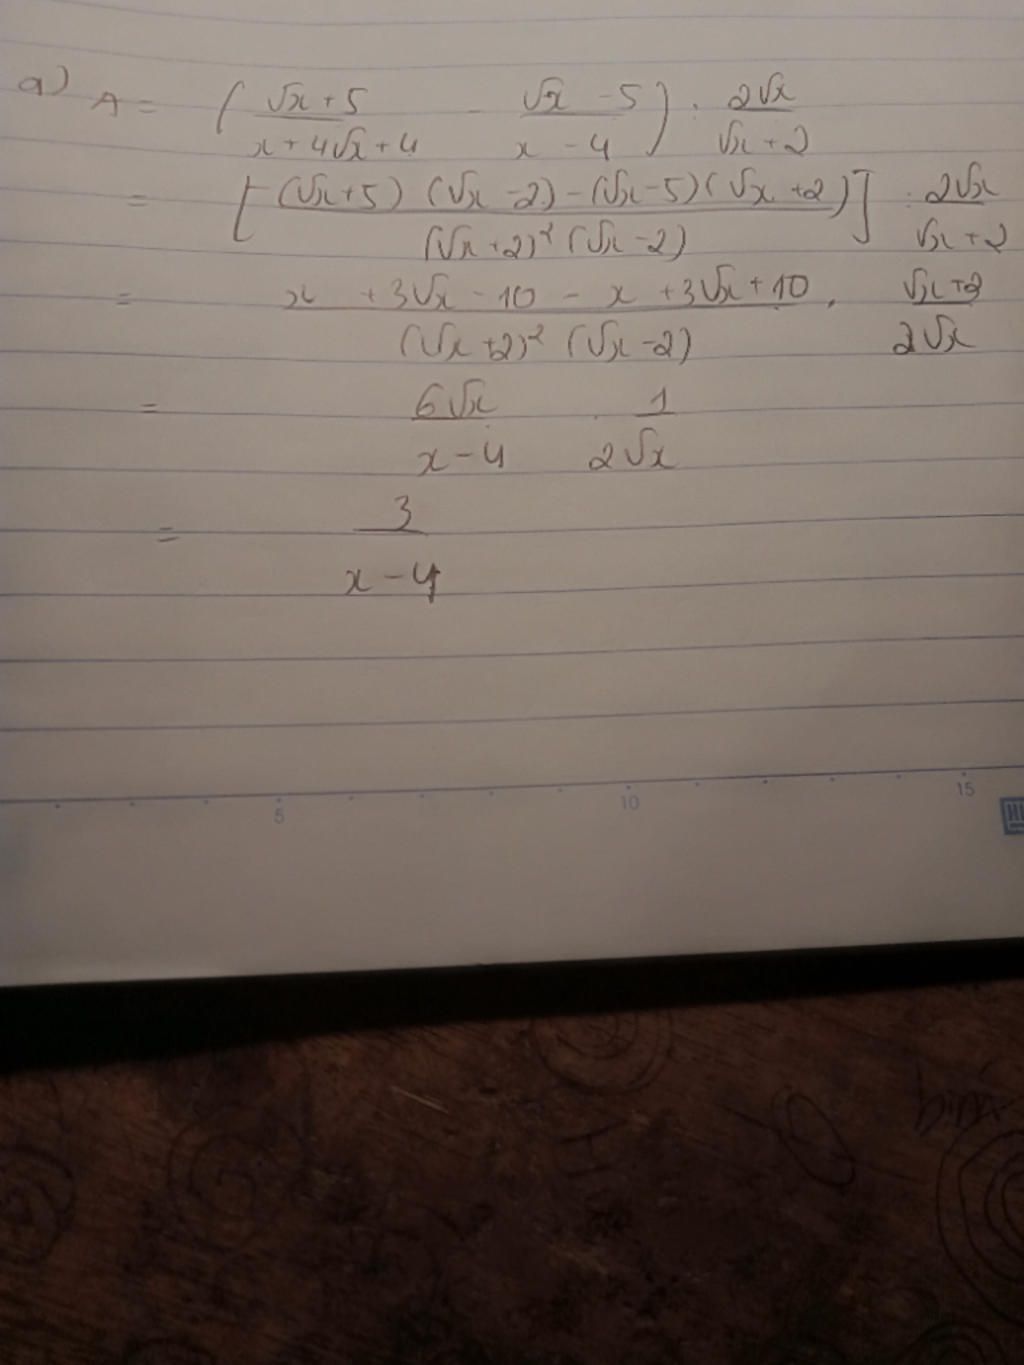 a) A = ( (√x + 5)/(x + 4√x + 4) - (√x - 5)/(x - 4) ) : 2√x/(√x + 2)
= [ ((√x + 5) (√x - 2) - (√x - 5) (√x + 2))/((√x + 2)² (√x - 2)) ] : 2√x/(√x + 2)
= (x + 3√x - 10 - x + 3√x + 10)/((√x + 2)² (√x - 2)) . (√x + 2)/(2√x)
= 6√x/(x - 4) . 1/(2√x)
= 3/(x - 4)
5 10 15